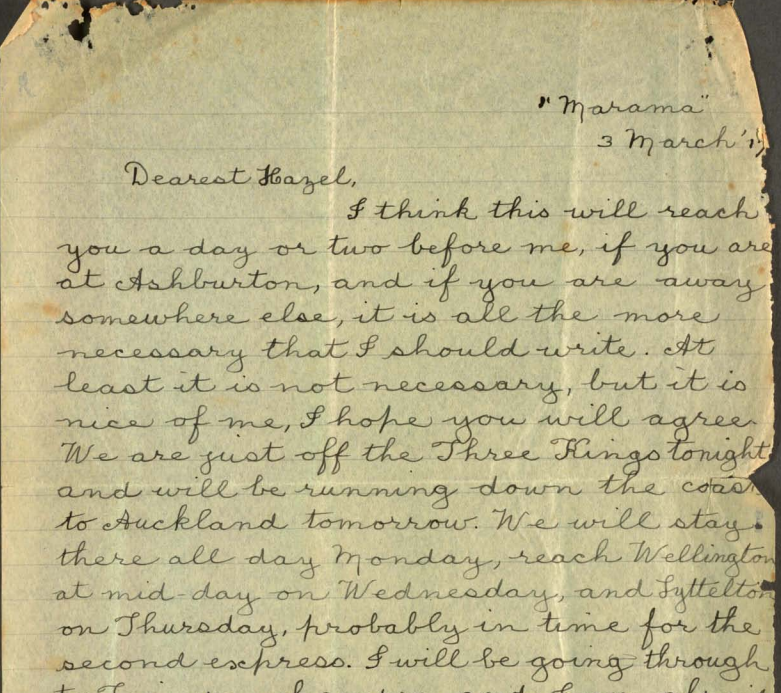 "Marama"
3 March '1
Dearest Hazel,
I think this will reach
you a day or two before me, if you are
at Ashburton, and if you are away
somewhere else, it is all the more
necessary that I should write. At
least it is not necessary, but it is
nice of me, I hope you will agree.
We are just off the Three Kings tonight
and will be running down the coast
to Auckland tomorrow. We will stay
there all day Monday, reach Wellington
at mid-day on Wednesday, and Lyttelton
on Thursday, probably in time for the
second express. I will be going through